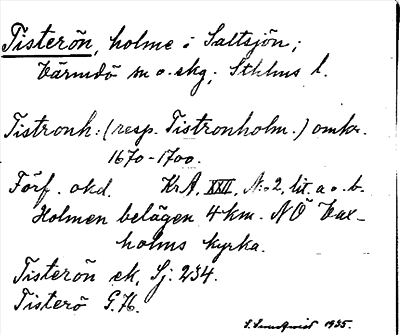 Tisterön, holme i Saltsjön;
Värmdö sn o. skg; Sthlms l.
Tistronh: (resp. Tistronholm.) omkr.
1670-1700.
Förf. okd. KrA, XXII, N:o 2, lit. a o. b.
Holmen belägen 4 km. NÖ Vax-
holms kyrka.
Tisterön ek, Sj: 234.
Tisterö G.K.
1935.